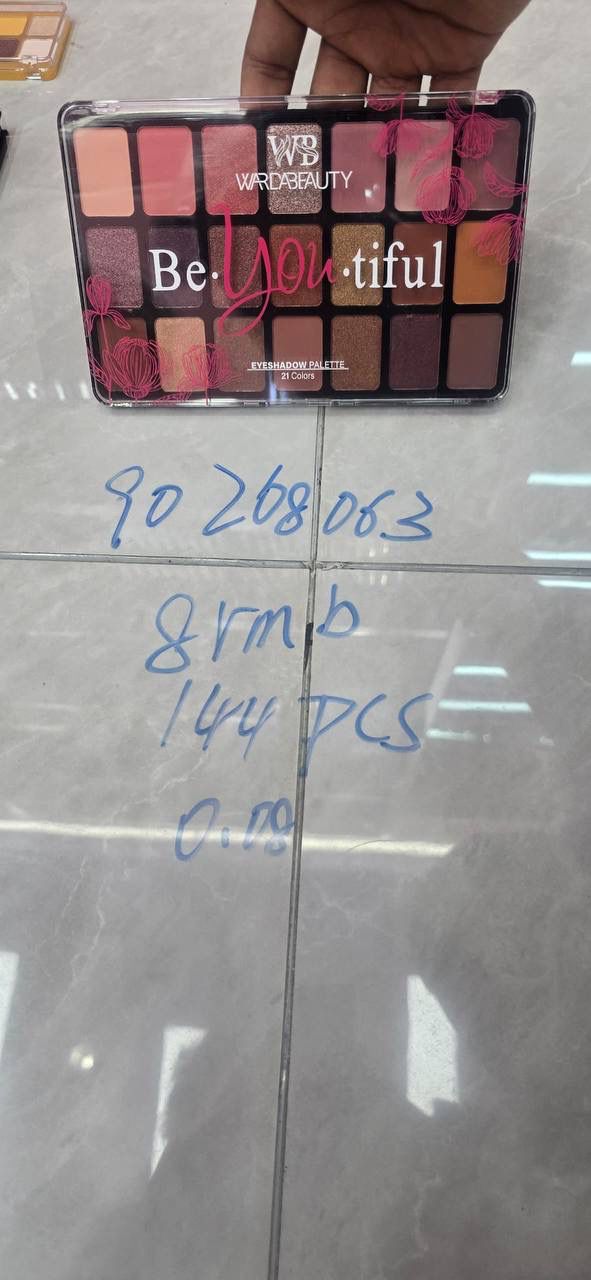 WB
WARDABEAUTY
Be·You·tiful
EYESHADOW PALETTE
21 Colors
90268063
8rmb
144 pcs
0.08